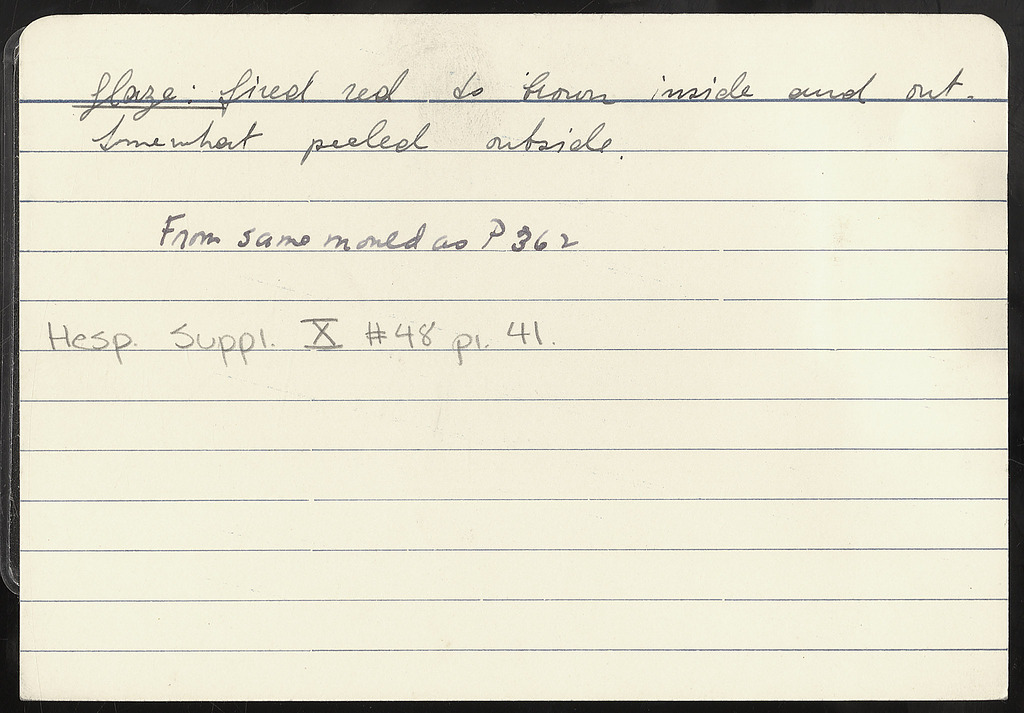 Glaze: fired red to brown inside and out.
Somewhat peeled outside.
From same mould as P 362
Hesp. Suppl. X #48 pl. 41.